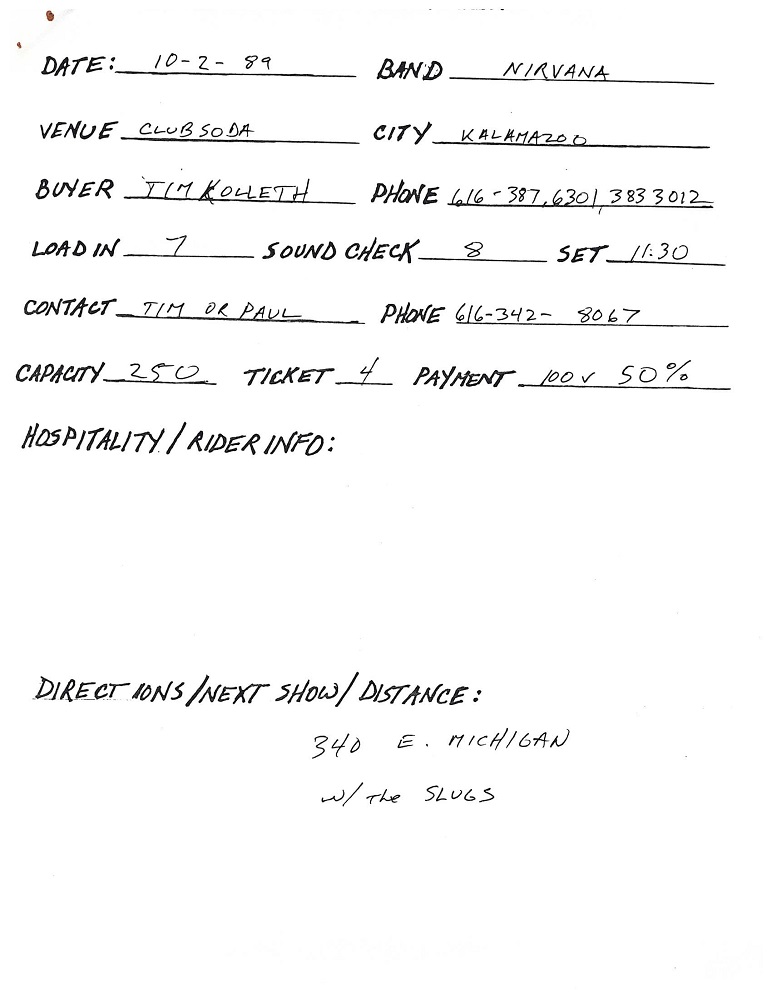 DATE: 10-2-89 BAND NIRVANA
VENUE CLUB SODA CITY KALAMAZOO
BUYER TIM KOLLETH PHONE 616-387,6301,383 3012
LOAD IN 7 SOUND CHECK 8 SET 11:30
CONTACT TIM OR PAUL PHONE 616-342-8067
CAPACITY 250 TICKET 4 PAYMENT 100 v 50%
HOSPITALITY/RIDER INFO:
DIRECTIONS/NEXT SHOW/DISTANCE:
340 E. MICHIGAN
w/ The SLUGS